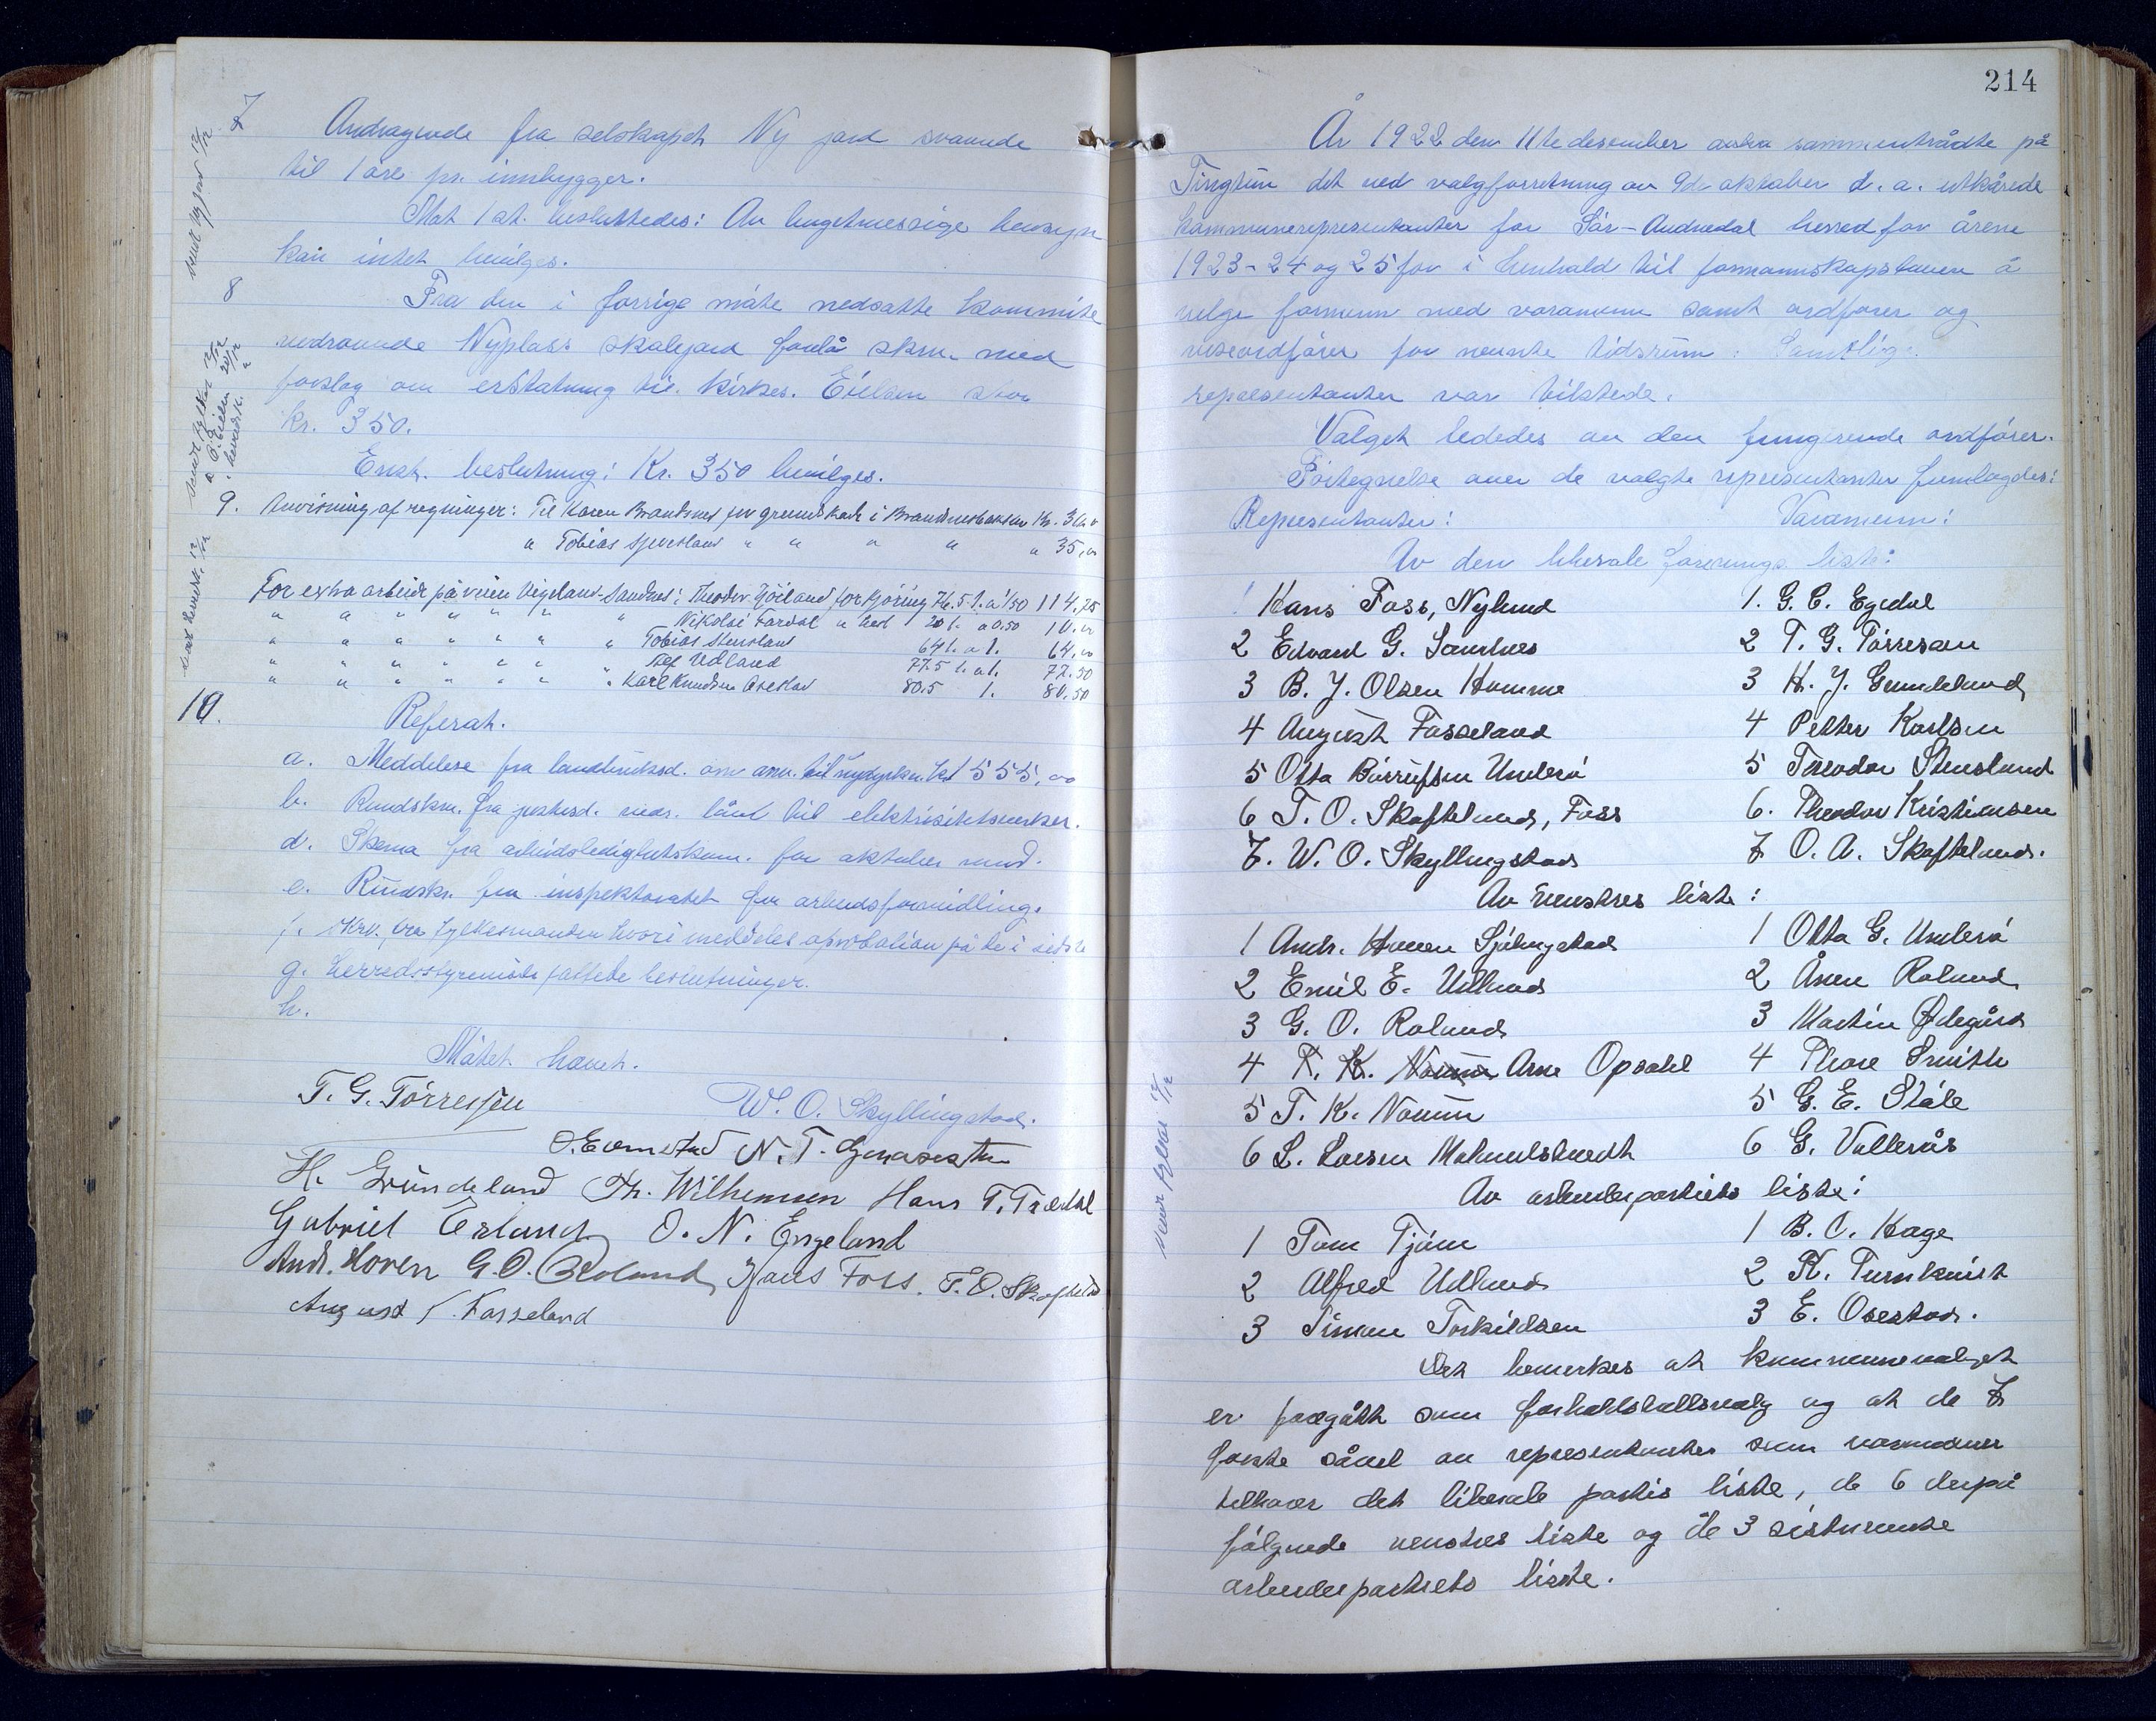 7 Andragende fra selskapet Ny jord svarende
til 1 øre pr. innbygger.
Mot 1 st. besluttedes: Av budgetmessige hensyn
kan intet bevilges.
8 Fra den i forrige møte nedsatte kommite
vedrørende Nyplass skolejord forelå skrv. med
forslag om erstatning til kirkes. Eielsen stor
kr. 350.
Enst. beslutning: Kr. 350 bevilges.
9. Anvisning af regninger: Til Karen Brandsnes for grunnskade i Kr.
" Tobias " " " " " 35,00
For extra arbeide på veien Vigeland-Sandnes: Theodor for kjøring 76.5 t. a 1/50 114,75
" " " " " " " Nikolai Fardal 20 t. a 0.50 10.00
" " " " " " " Tobias Stensland 64 t. a 1. 64,00
" " " " " " " Udland 77.5 t. a 1. 77.50
" " " " " " " Karl Knudsen Osestad 80.5 1. 80,50
10. Referat.
a. Meddelelse fra landbruksd. om anv. til nydyrkn. kr 555,00
b. Rundskr. fra justisd. vedr. lånt til elektrisitetsverker.
d. Skema fra arbeidsledighetskom. for oktober mnd.
e. Rundskr. fra inspektoratet for arbeidsformidling.
f. Skrv. fra fylkesmanden hvori meddeles aprobation på de i sidste
g. herredsstyremøte fattede beslutninger.
h.
Møtet hævet.
T. G. Tørressen W. O. Skyllingstad.
N. T.
H. Gründeland Th. Wilhemsen Hans T.
Gabriel Erland O. N. Engeland
Andr. Hoven G. O. Roland Hans Foss. T. O. Skofteland
August F. Fasseland
214
År 1922 den 11te desember sammentrådte på
Tingtun det ved valgforretning av 9de oktober d. a. utkårede
kommunerepresentanter for Sør-Audnedal herred for årene
1923-24 og 25 for i henhold til formannskapsloven å
velge formenn med varamenn samt ordfører og
viseordfører for nevnte tidsrum. Samtlige
representanter var tilstede.
Valget lededes av den fungerende ordfører.
Fortegnelse over de valgte representanter fremlagdes:
Representanter: Varamenn:
Av den liberale forenings liste:
1 Hans Foss, Nylund 1. G. C. Egedal
2 Edvard G. Sandnes 2 T. G. Tørresen
3 B. J. Olsen Homme 3 H. J. Gundeland
4 August Fasseland 4 Petter Karlsen
5 Otto Børrufsen Underø 5 Theodor Stensland
6 T. O. Skofteland, Foss 6. Theodor Kristiansen
7. W. O. Skyllingstad 7 O. A. Skofteland.
Av venstres liste:
1 Andr. Hoven Sjølingstad 1 Otto G. Underø
2 Emil E. Udland 2 Ånen Roland
3 G. O. Roland 3 Martin Ødegård
4 Arne Opsahl 4 Thore Smith
5 T. K. 5 G. E. Ståle
6 L. Larsen 6 G. Vallerås
Av arbeiderpartiets liste:
1 Tom Tjøm 1 B. O. Hage
2 Alfred Udland 2 K. Turnkvist
3 Simon Torkildsen 3 E. Osestad.
Det bemerkes at kommunevalget
er foregått som forholdstallsvalg og at de 7
første såvel av representanter som varamenn
tilhører det liberale partis liste, de 6 derpå
følgende venstres liste og de 3 sistnevnte
arbeiderpartiets liste.